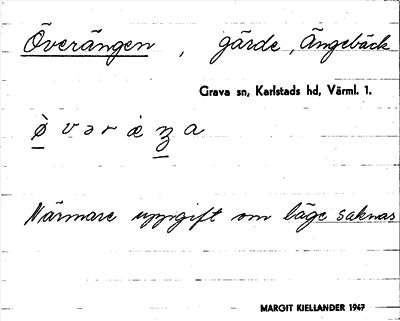 Överängen, gärde, Ängebäck
Grava sn, Karlstads hd, Värml. 1.
Närmare uppgift om läge saknas
MARGIT KIELLANDER 1947